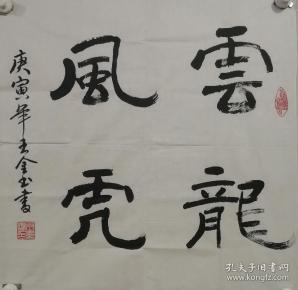 雲龍
風虎
庚寅年王金書
孔夫子旧书网
www.kongfz.com